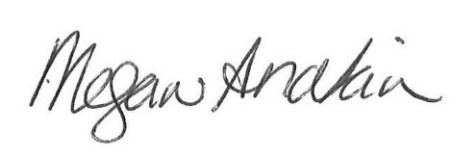 Megan Anakin